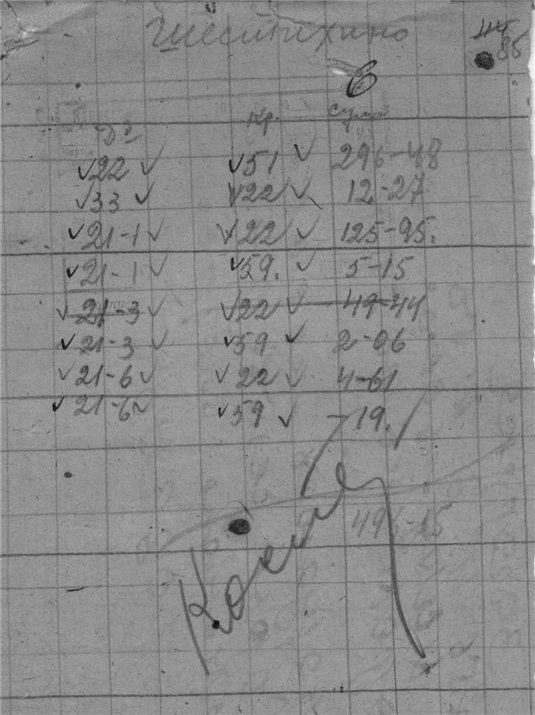 Шестихино
85
Дт Кр. Сум
22 51 296-48
33 22 12-27
21-1 22 125-95.
21-1 59. 5-15
21-3 22 49-44
21-3 59 2-06
21-6 22 4-61
21-6 59 -19.
496-15